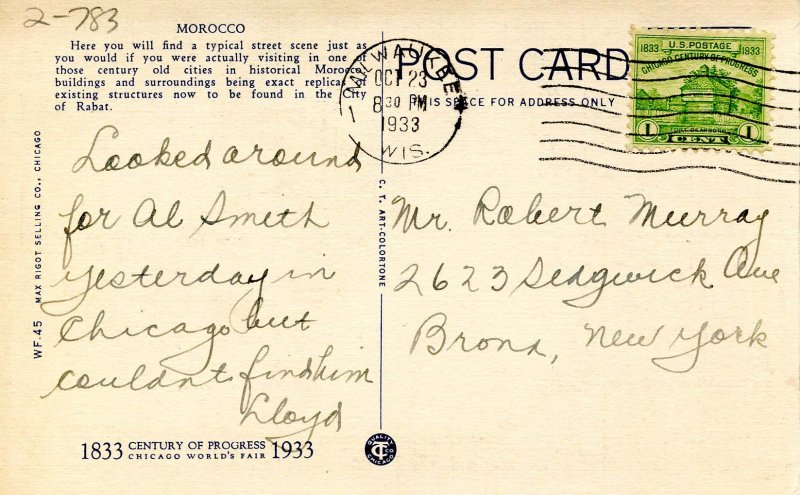 2-783
MOROCCO
Here you will find a typical street scene just as
you would if you were actually visiting in one of
those century old cities in historical Morocco
buildings and surroundings being exact replicas
existing structures now to be found in the City
of Rabat.
Looked around
for Al Smith
yesterday in
Chicago but
couldnt find him
Lloyd
1833 CENTURY OF PROGRESS 1933
CHICAGO WORLD'S FAIR
WF.45 MAX RIGOT SELLING CO., CHICAGO
C. T. ART-COLORTONE
QUALITY
CTC
CHICAGO
POST CARD
THIS SPACE FOR ADDRESS ONLY
MILWAUKEE
1
OCT 23
8 30 PM
1933
WIS.
1833 U.S. POSTAGE 1933
CHICAGO CENTURY OF PROGRESS
FORT DEARBORN
1 CENT 1
Mr. Robert Murray
2623 Sedgwick Ave
Bronx, New York